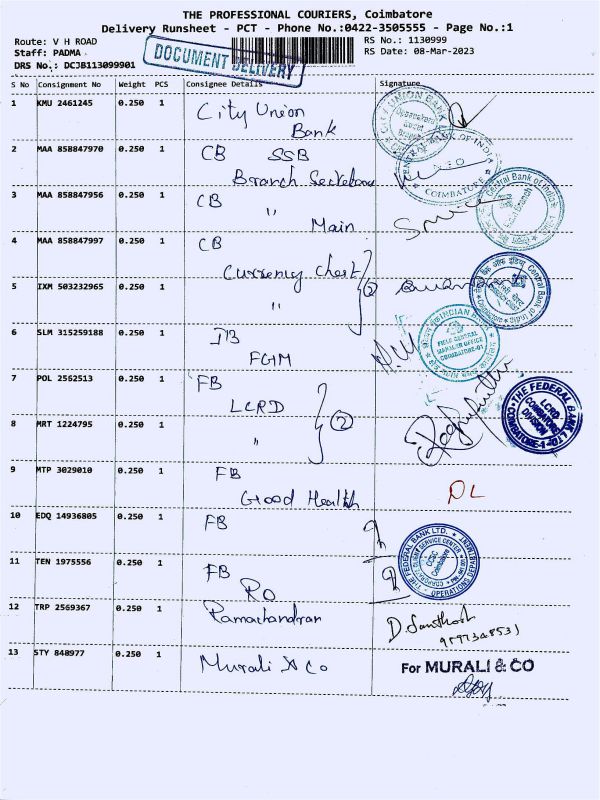 THE PROFESSIONAL COURIERS, Coimbatore
Delivery Runsheet - PCT - Phone No.:0422-3505555 - Page No.:1
Route: V H ROAD
Staff: PADMA
DRS No.: DCJB113099901
RS No.: 1130999
RS Date: 08-Mar-2023
DOCUMENT DELIVERY
S No Consignment No Weight PCS Consignee Details Signature
1 KMU 2461245 0.250 1 City Union
Bank
CITY UNION BANK
2 MAA 858847970 0.250 1 CB SSB
Branch Secretary
CENTRAL BANK OF INDIA
COIMBATORE
3 MAA 858847956 0.250 1 CB
" Main
Central Bank of India
4 MAA 858847997 0.250 1 CB
Currency Chest
5 IXM 503232965 0.250 1 " 2
Central Bank of India
6 SLM 315259188 0.250 1 IB
FGIM
INDIAN BANK
FIELD GENERAL
MANAGER OFFICE
COIMBATORE-01
7 POL 2562513 0.250 1 FB
LCRD
8 MRT 1224795 0.250 1 " 2
THE FEDERAL BANK LTD
LCRD
COIMBATORE
DIVISION
COIMBATORE-1
9 MTP 3029010 0.250 1 FB
Good Health
DL
10 EDQ 14936805 0.250 1 FB
THE FEDERAL BANK LTD.
OPERATIONS DEPARTMENT
11 TEN 1975556 0.250 1 FB
RO
12 TRP 2569367 0.250 1 Ramachandran
D. Santhosh
13 STY 848977 0.250 1 Murali & Co
For MURALI & CO